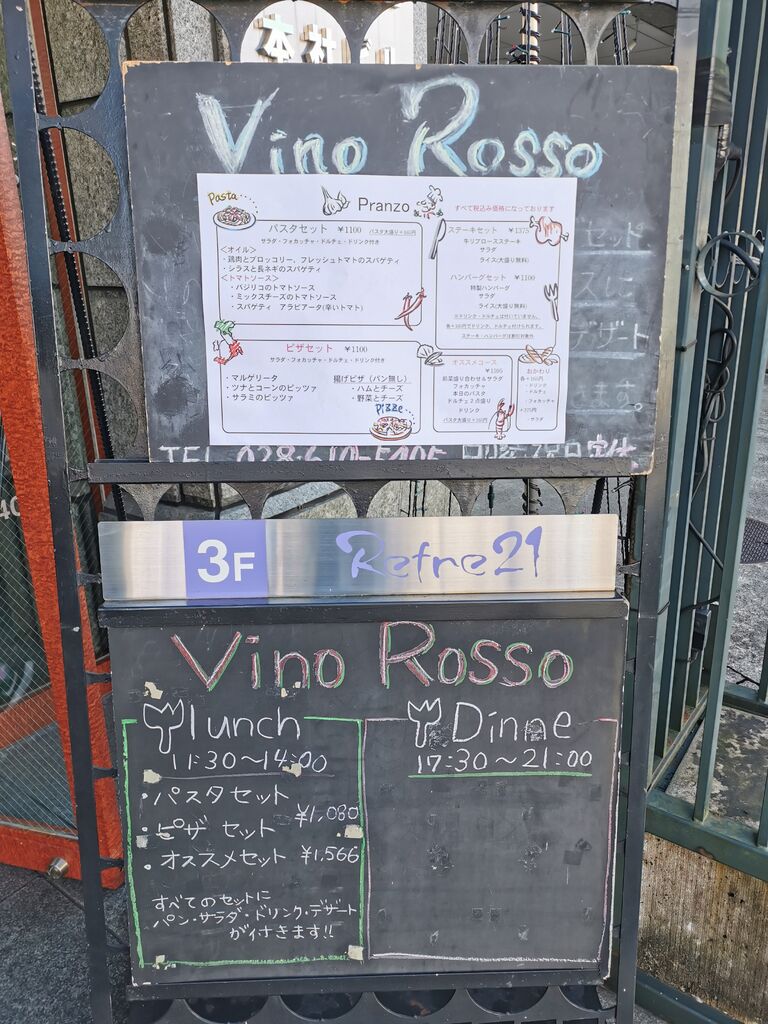 本社
Vino Rosso
Pasta
Pranzo
すべて税込み価格になっております
パスタセット ¥1100 パスタ大盛り+165円
サラダ・フォカッチャ・ドルチェ・ドリンク付き
<オイル>
・鶏肉とブロッコリー、フレッシュトマトのスパゲティ
・シラスと長ネギのスパゲティ
<トマトソース>
・バジリコのトマトソース
・ミックスチーズのトマトソース
・スパゲティ アラビアータ(辛いトマト)
ステーキセット ¥1375
牛リブロースステーキ
サラダ
ライス(大盛り無料)
ハンバーグセット ¥1100
特製ハンバーグ
サラダ
ライス(大盛り無料)
※ドリンク・ドルチェは付いていません。
各+165円でドリンク、ドルチェ付けられます。
ステーキ・ハンバーグは割引対象外
ピザセット ¥1100
サラダ・フォカッチャ・ドルチェ・ドリンク付き
・マルゲリータ
・ツナとコーンのピッツァ
・サラミのピッツァ
揚げピザ(パン無し)
・ハムとチーズ
・野菜とチーズ
Pizze
オススメコース
¥1595
前菜盛り合わせ&サラダ
フォカッチャ
本日のパスタ
ドルチェ2点盛り
ドリンク
パスタ大盛り+165円
おかわり
各+165円
・ドリンク
・ドルチェ
・フォカッチャ
+275円
・サラダ
セット
デザート
ます。
TEL 028-610-5405
定休
3F Refre21
Vino Rosso
lunch
11:30～14:00
・パスタセット
¥1,080
・ピザ セット
・オススメセット ¥1,566
すべてのセットに
パン・サラダ・ドリンク・デザート
が付きます!!
Dinne
17:30～21:00